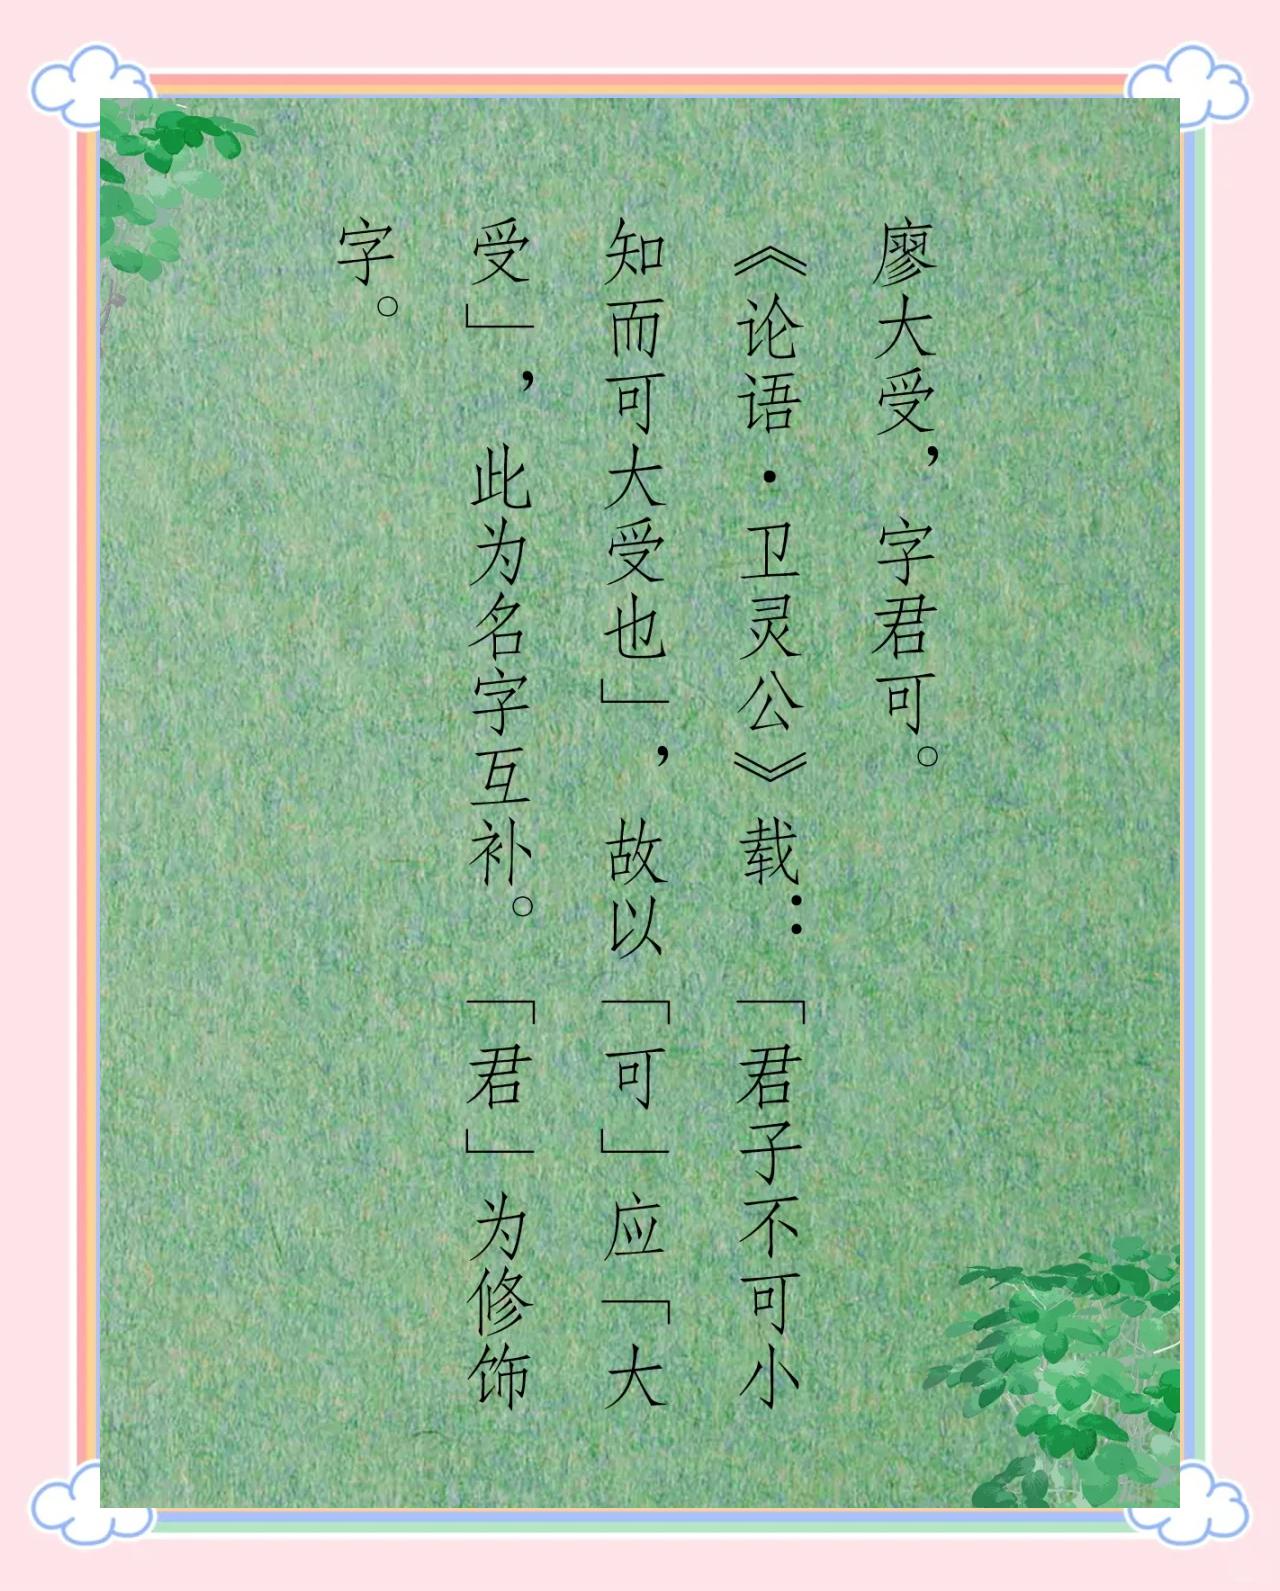 廖大受，字君可。
《论语·卫灵公》载：「君子不可小
知而可大受也」，故以「可」应「大
受」，此为名字互补。「君」为修饰
字。